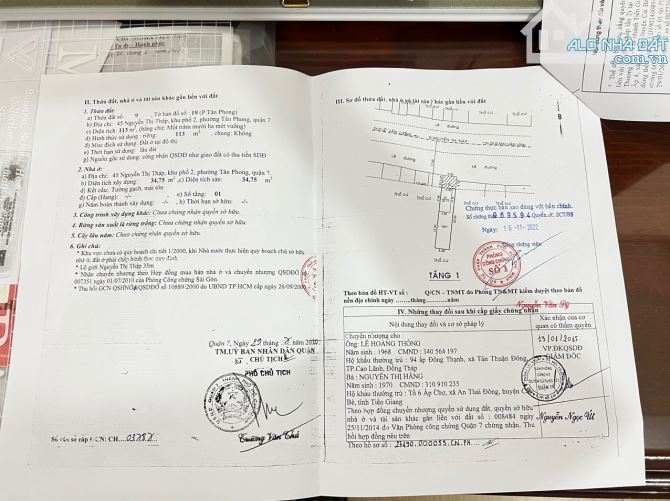 ALO NHÀ ĐẤT
.com.vn
Tự do - Hạnh phúc
II. Thửa đất, nhà ở và tài sản khác gắn liền với đất
1. Thửa đất:
a) Thửa đất số: 9 Tờ bản đồ số: 19 (P.Tân Phong)
b) Địa chỉ: 45 Nguyễn Thị Thập, khu phố 2, phường Tân Phong, quận 7.
c) Diện tích: 113 m², (bằng chữ: Một trăm mười ba mét vuông)
d) Hình thức sử dụng: riêng: 113 m², chung: Không
đ) Mục đích sử dụng: Đất ở tại đô thị
e) Thời hạn sử dụng: lâu dài
g) Nguồn gốc sử dụng: công nhận QSDĐ như giao đất có thu tiền SDĐ
2. Nhà ở:
a) Địa chỉ: 45 Nguyễn Thị Thập, khu phố 2, phường Tân Phong, quận 7.
b) Diện tích xây dựng: 34,75 m² c) Diện tích sàn: 34,75 m²
d) Kết cấu: Tường gạch, mái tôn
đ) Cấp (Hạng): -/- e) Số tầng: 01
g) Năm hoàn thành xây dựng: -/- h) Thời hạn sở hữu: -/-
3. Công trình xây dựng khác: Chưa chứng nhận quyền sở hữu.
4. Rừng sản xuất là rừng trồng: Chưa chứng nhận quyền sở hữu.
5. Cây lâu năm: Chưa chứng nhận quyền sở hữu.
6. Ghi chú:
* Khu vực chưa có quy hoạch chi tiết 1/2000, khi Nhà nước thực hiện quy hoạch chủ sở hữu
nhà ở, đất ở phải chấp hành theo quy định.
* Lộ giới Nguyễn Thị Thập 35m
* Nhận chuyển nhượng theo Hợp đồng mua bán nhà ở và chuyển nhượng QSDĐ số
007351 ngày 01/07/2010 của Phòng Công chứng Sài Gòn.
* Thu hồi GCN QSHNƠ&QSDĐƠ số 10889/2000 do UBND TP.HCM cấp ngày 26/09/2000
Quận 7, ngày
TM.UỶ BAN NHÂN DÂN QUẬN
CHỦ TỊCH
PHÓ CHỦ TỊCH
Trương Văn Thái
Số vào sổ cấp GCN: CH
III. Sơ đồ thửa đất, nhà ở và tài sản / khác gắn liền với đất
B
Lề đường
NGUYỄN THỊ THẬP
Lề đường
THỔ CƯ
THỔ CƯ
THỔ CƯ
TẦNG 1
Chứng thực bản sao đúng với bản chính
Số chứng thực 069594 Quyển số SCT/BS
Ngày: 16-11-2022
Công chứng viên
PHÒNG CÔNG CHỨNG SỐ 1
Nguyễn Văn
Theo bản đồ HT-VT số: Q/CN - TNMT do Phòng TN&MT kiểm duyệt theo bản đồ
nền địa chính ngày........tháng........năm
IV. Những thay đổi sau khi cấp giấy chứng nhận
Nội dung thay đổi và cơ sở pháp lý
Xác nhận của cơ
quan có thẩm quyền
Chuyển nhượng cho:
Ông: LÊ HOÀNG THÔNG
Sinh năm : 1968 CMND : 340 564 197
Hộ khẩu thường trú : 94 ấp Đông Thạnh, xã Tân Thuận Đông,
TP.Cao Lãnh, Đồng Tháp
Bà: NGUYỄN THỊ HẰNG
Sinh năm : 1970 CMND : 310 910 235
Hộ khẩu thường trú : Tổ 6 Ấp Chợ, xã An Thái Đông, huyện Cái
Bè, tỉnh Tiền Giang
Theo hợp đồng chuyển nhượng quyền sử dụng đất, quyền sở hữu
nhà ở và tài sản khác gắn liền với đất số : 008484 ngày
25/11/2014 do Văn Phòng công chứng Quận 7 chứng nhận. Thu
hồi hợp đồng nêu trên
Theo hồ sơ số:
19/01/2015
VP.ĐKQSDĐ
GIÁM ĐỐC
Nguyễn Ngọc Út